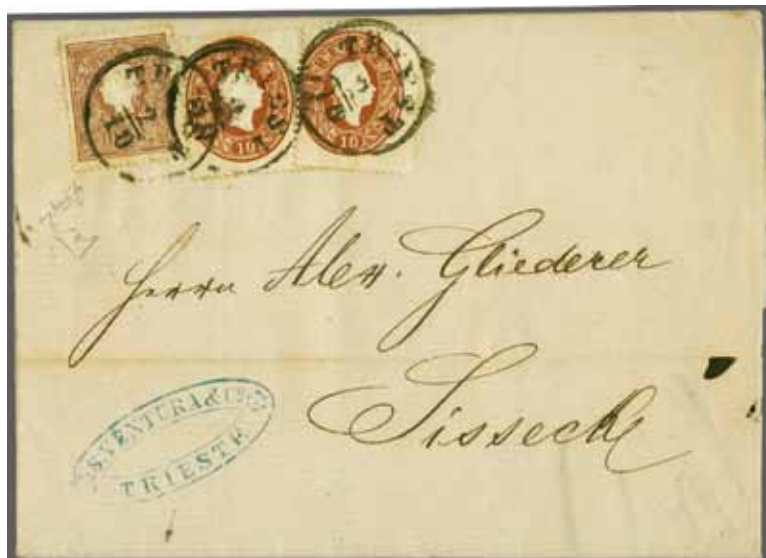 TRIEST
2/10
TRIEST
10
TRIEST
10
Herrn Alex. Gliederer
Sisseck
VENTURA &
TRIESTE